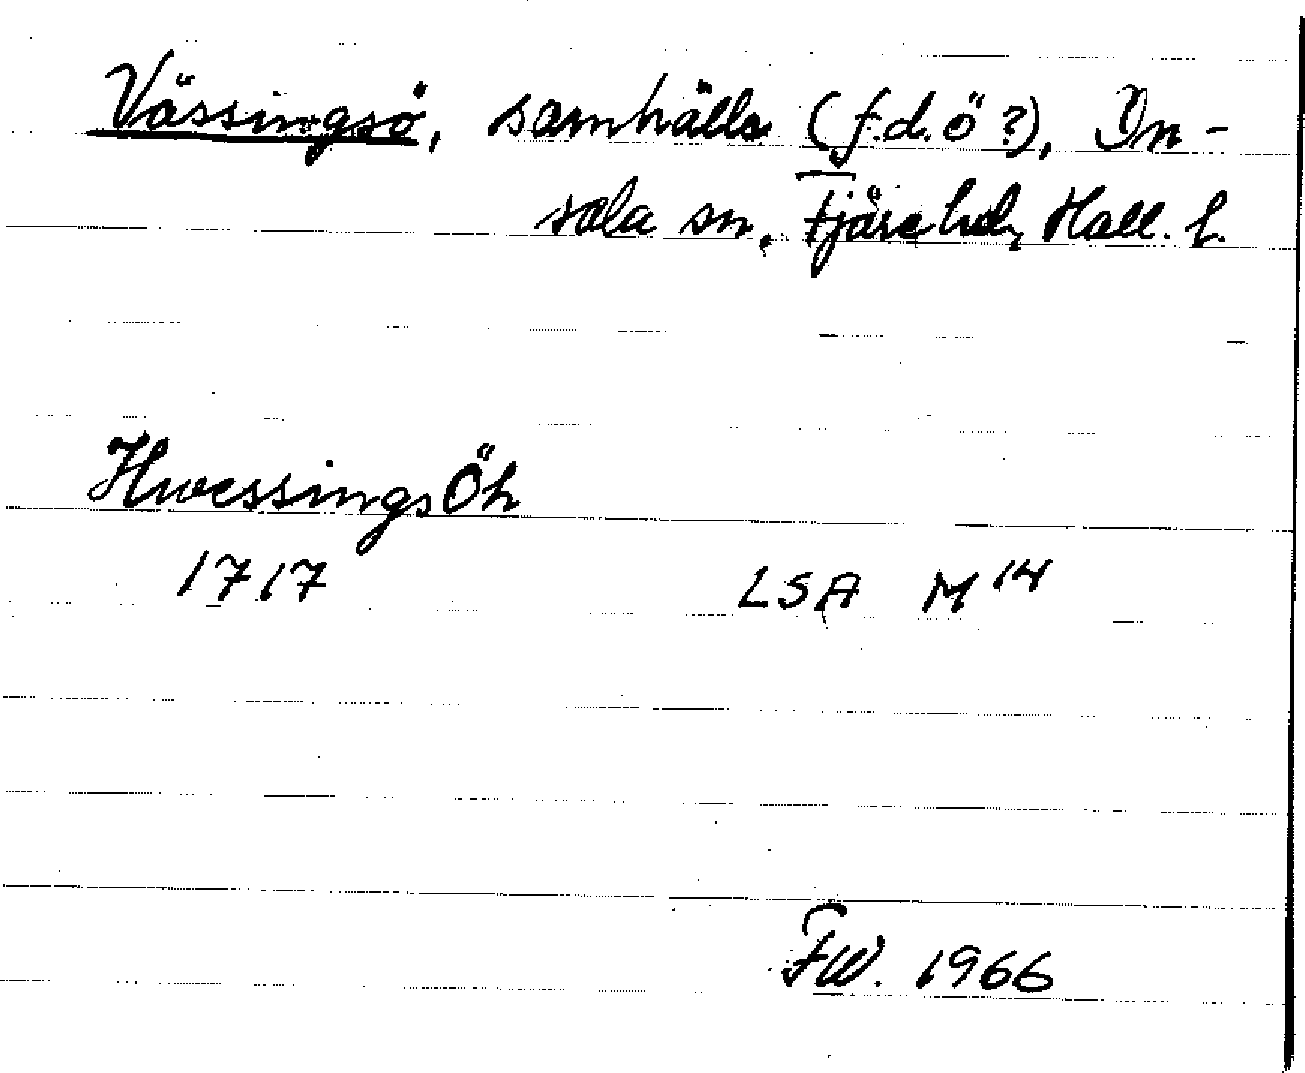 Vässingsö, samhälle (f.d. ö?), On-
sala sn, Fjäre hd, Hall. l.
HwessingsÖh
1717 LSA M 14
FW. 1966